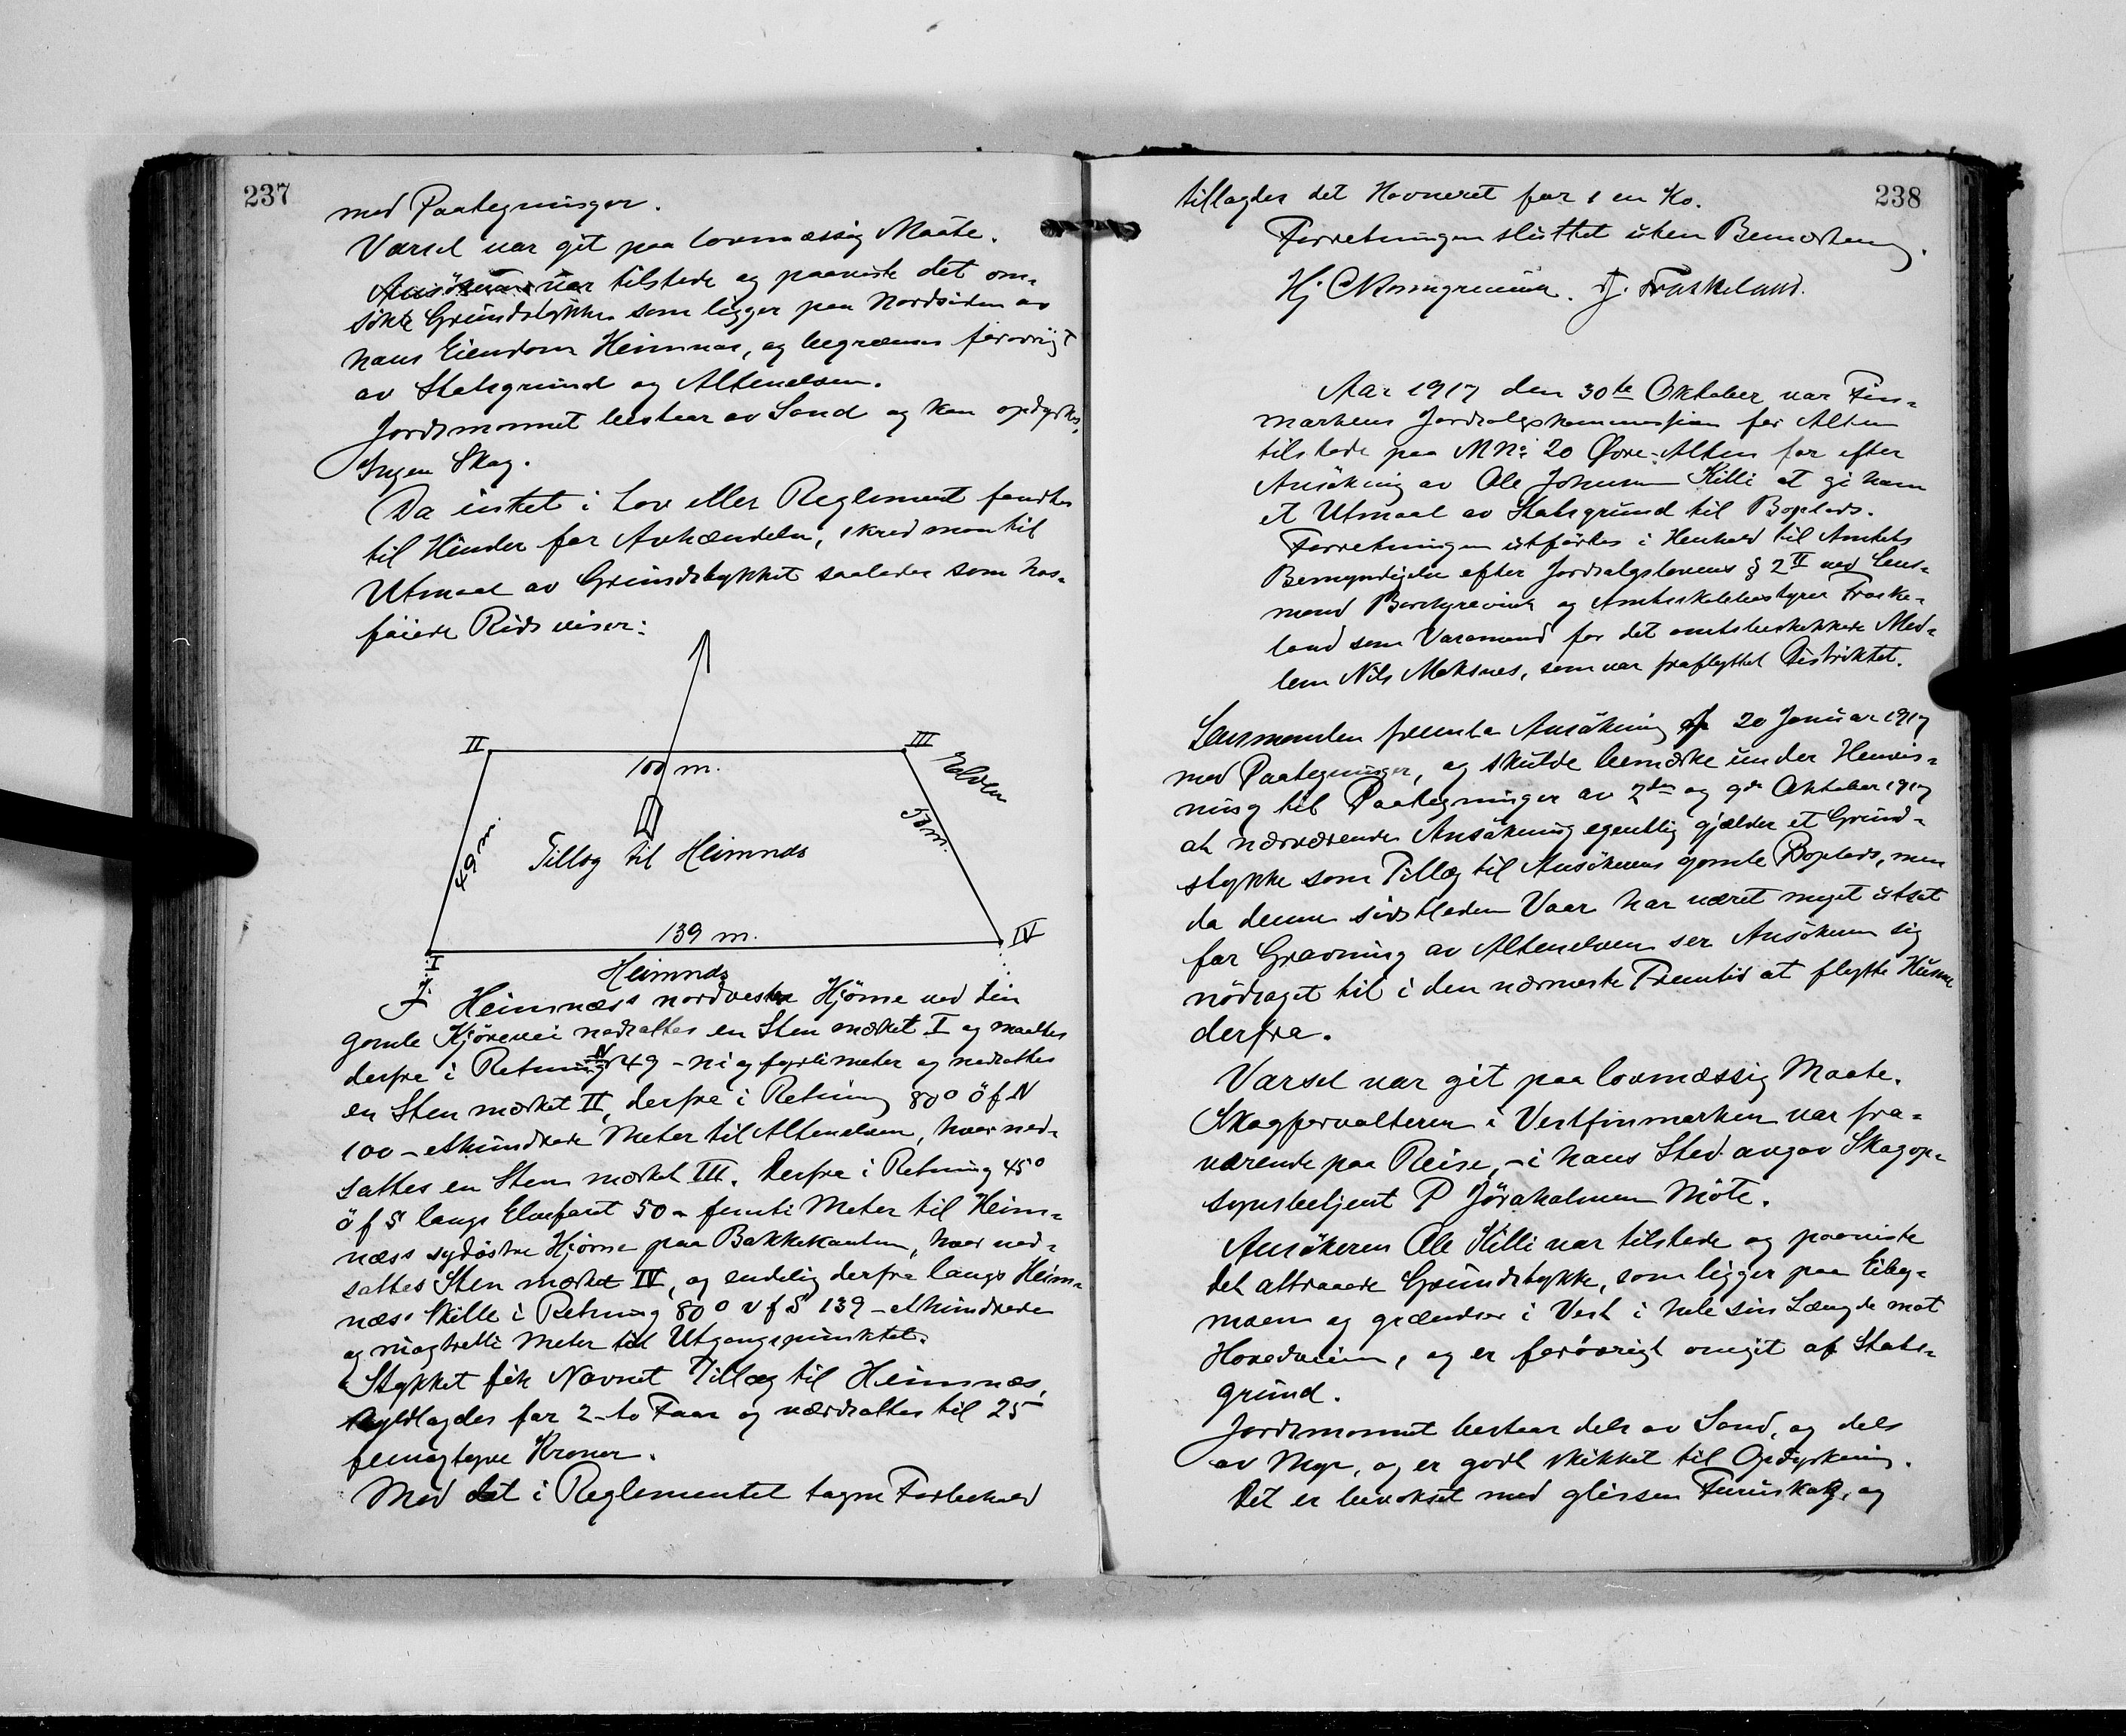 237
med Paategninger.
Varsel var git paa lovmæssig Maate.
Ansökeren var tilstede og paaviste det om-
sökte Grundstykke som ligger paa Nordsiden av
hans Eiendom Heimnæs, og begrænses forövrigt
av Statsgrund og Altenelven.
Jordsmonnet bestaar av Sand og kan opdyrkes.
Ingen Skog.
Da intet i Lov eller Reglement fandtes
til Hinder for Avhændelse, skred man til
Utmaal av Grundstykket saaledes som hos-
föiede Rids viser:
II
III
100 m.
Elven
50 m.
49 m.
Tillæg til Heimnæs
139 m.
IV
I
Heimnæs
I Heimnæs's nordvestre Hjörne ved den
gamle Kjörevei nedsattes en Sten mærket I og maaltes
derfra i Retning N 49 - ni og förti meter og nedsattes
en Sten mærket II, derfra i Retning 80° ö f N
100 - ethundrede Meter til Altenelven, hvor ned-
sattes en Sten mærket III. Derfra i Retning 45°
ö f S langs Elvefaret 50 - femti Meter til Heim-
næss sydöstre Hjörne paa Bakkekanten, hvor ned-
sattes Sten mærket IV, og endelig derfra langs Heim-
næs' Skille i Retning 80° v f S 139 - ethundrede
og niogtretti Meter til Utgangspunktet.
Stykket fik Navnet Tillæg til Heimnæs,
skyldlagdes for 2 - to Faar og værdsattes til 25
femogtyve Kroner.
Med det i Reglementet tagne Forbehold
238
tillagdes det Havneret for 1 en Ko.
Forretningen sluttet uten Bemærkning.
Hj. C. J. Fraskeland.
Aar 1917 den 30te Oktober var Fin-
markens Jordsalgskommission for Alten
tilstede paa M No 20 Övre-Alten for efter
Ansökning av Ole Johnsen Killi at gi ham
et Utmaal av Statsgrund til Boplads.
Forretningen utförtes i Henhold til Amtets
Bemyndigelse efter Jordsalgslovens § 2 II ved Lens-
mand Borchgrevink og Amtsskolebestyrer Fraske-
land som Varamand for det amtsbeskikkede Med-
lem Nils Moksnes, som var fraflyttet Distriktet.
Lensmanden fremla Ansökning af 20 Januar 1917
med Paategninger, og skulde bemærke under Henvis-
ning til Paategninger av 2den og 9de Oktober 1917
at nærværende Ansökning egentlig gjælder et Grund-
stykke som Tillæg til Ansökerens gamle Boplads, men
da denne sidstleden Vaar har været meget utsat
for Gravning av Altenelven ser Ansökeren sig
nödsaget til i den nærmeste Fremtid at flytte Husene
derfra.
Varsel var git paa lovmæssig Maate.
Skogforvalteren i Vestfinmarken var fra-
værende paa Reise, - i hans Sted avgav Skogop-
synsbetjent P Jöraholmen Möte.
Ansökeren Ole Killi var tilstede og paaviste
det attraaede Grundstykke, som ligger paa Eiby-
moen og grændser i Vest i hele sin Længde mot
Hovedveien, og er forövrigt omgit af Stats-
grund.
Jordsmonnet bestaar dels av Sand, og dels
av Myr, og er godt skikket til Opdyrkning.
Det er bevokset med glissen Furuskog, og